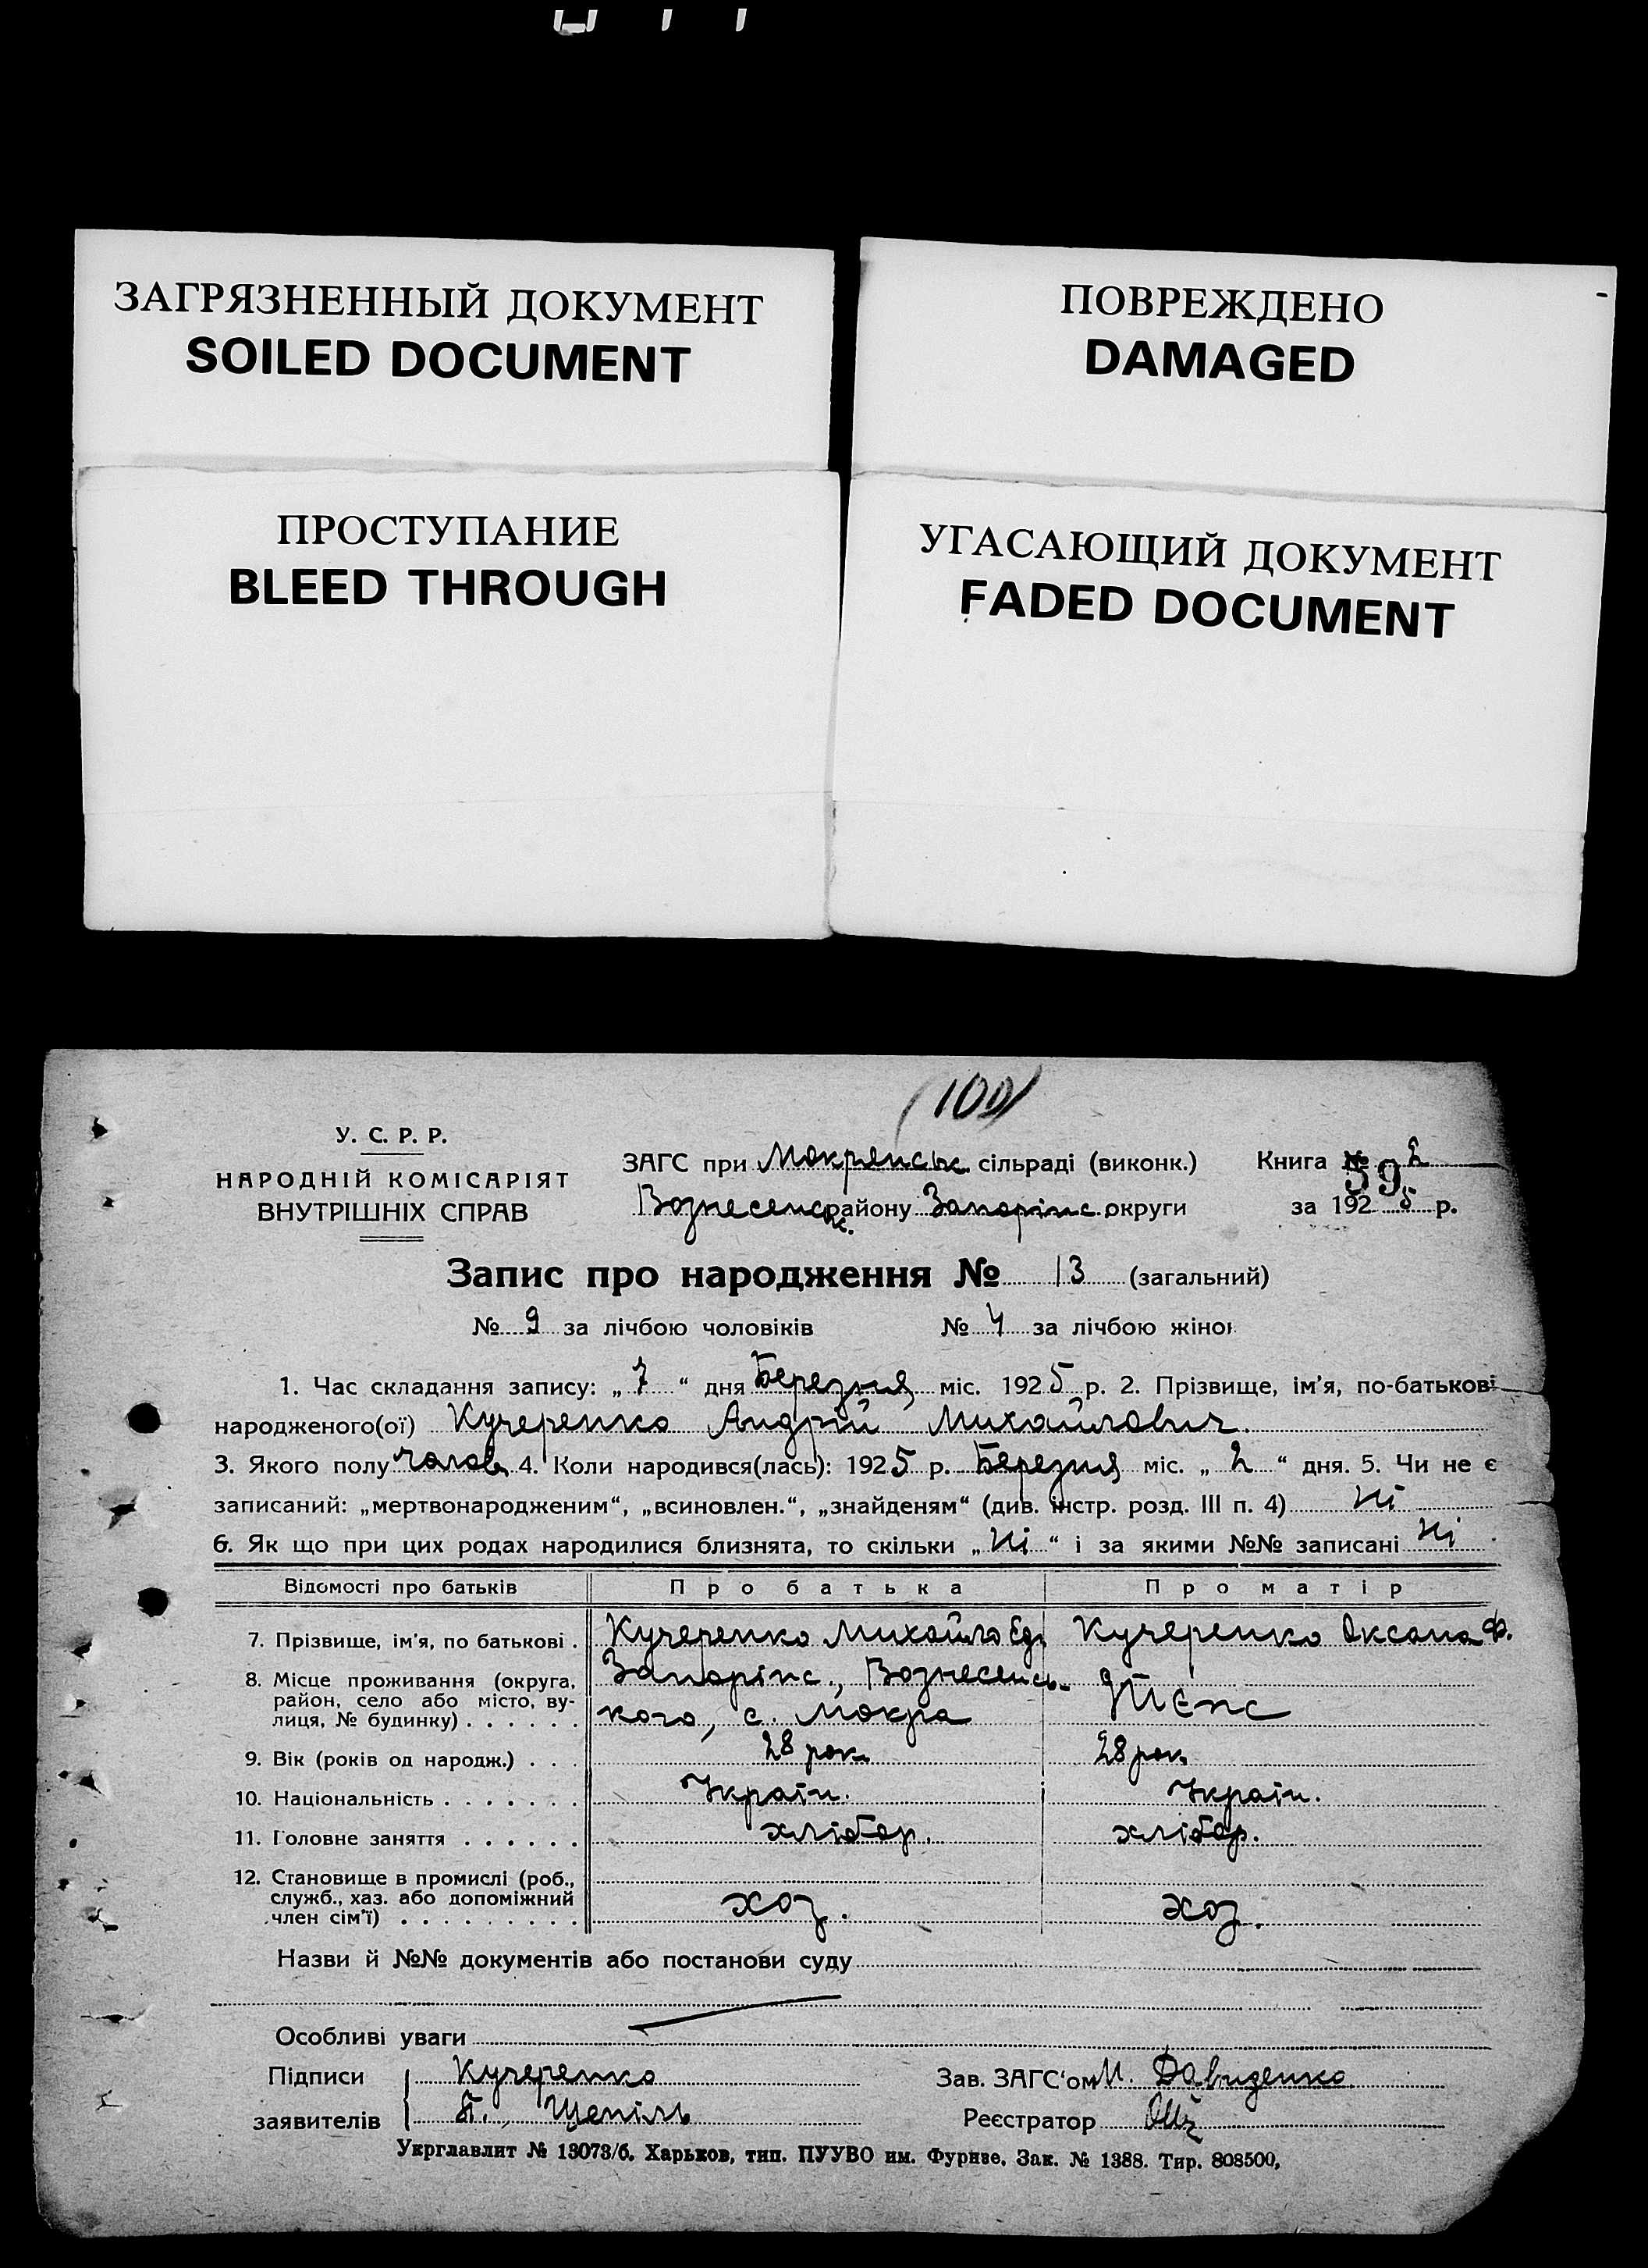 ЗАГРЯЗНЕННЫЙ ДОКУМЕНТ
SOILED DOCUMENT
ПОВРЕЖДЕНО
DAMAGED
ПРОСТУПАНИЕ
BLEED THROUGH
УГАСАЮЩИЙ ДОКУМЕНТ
FADED DOCUMENT
(100)
У. С. Р. Р.
НАРОДНІЙ КОМІСАРІЯТ
ВНУТРІШНІХ СПРАВ
ЗАГС при Мокрянськ. сільраді (виконк.)
Вознесенськ. району Запоріпс. округи
Книга № 2
59
за 1925 р.
Запис про народження № 13 (загальний)
№ 9 за лічбою чоловіків № 4 за лічбою жінок
1. Час складання запису: „7“ дня Березня міс. 1925 р. 2. Прізвище, ім'я, по-батькові
народженого(ої) Кучеренко Андрій Михайлович.
3. Якого полу чолов. 4. Коли народився(лась): 1925 р. Березня міс. „2“ дня. 5. Чи не є
записаний: „мертвонародженим“, „всиновлен.“, „знайденям“ (див. інстр. розд. III п. 4) Ні
6. Як що при цих родах народилися близнята, то скільки „Ні“ і за якими №№ записані Ні
Відомості про батьків Про батька Про матір
7. Прізвище, ім'я, по батькові . Кучеренко Михайло Кучеренко Оксана Ф.
8. Місце проживання (округа, район, село або місто, вулиця, № будинку) . . . . . . Запоріпс., Вознесенського, с. Мокра
9. Вік (років од народж.) . . . 28 рок. 28 рок.
10. Національність . . . . . . . Україн. Україн.
11. Головне заняття . . . . . . хлібор. хлібор.
12. Становище в промислі (роб., служб., хаз. або допоміжний член сім'ї) . . . . . . . . . хоз. хоз.
Назви й №№ документів або постанови суду
Особливі уваги
Підписи заявителів Кучеренко
П. Щепіль
Зав. ЗАГС'ом М. Давиденко
Реєстратор
Укрглавлит № 13073/б. Харьков, тип. ПУУВО им. Фрунзе. Зак. № 1388. Тир. 808500,